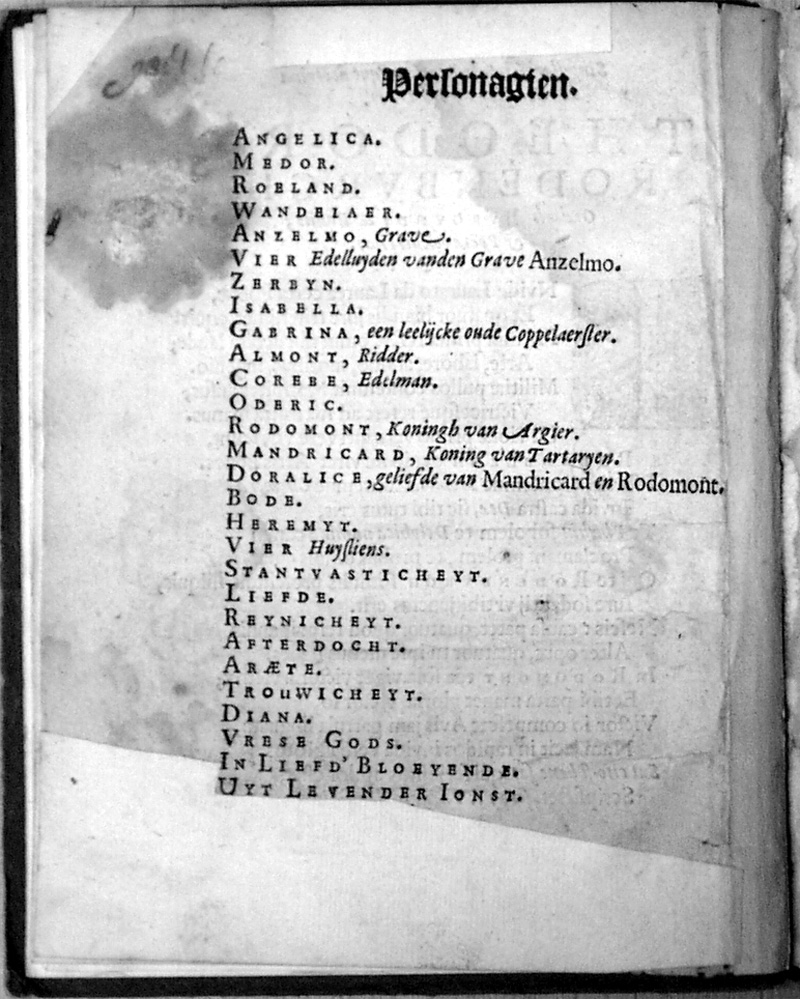 Personagien.
ANGELICA.
MEDOR.
ROELAND.
WANDELAER.
ANZELMO, Grave.
VIER Edelluyden vanden Grave Anzelmo.
ZERBYN.
ISABELLA.
GABRINA, een leelijcke oude Coppelaerster.
ALMONT, Ridder.
COREBE, Edelman.
ODERIC.
RODOMONT, Koningh van Argier.
MANDRICARD, Koning van Tartaryen.
DORALICE, geliefde van Mandricard en Rodomont.
BODE.
HEREMYT.
VIER Huysliens.
STANTVASTICHEYT.
LIEFDE.
REYNICHEYT.
AFTERDOCHT.
ARÆTE.
TROUWICHEYT.
DIANA.
VRESE GODS.
IN LIEFD' BLOEYENDE.
UYT LEVENDER IONST.